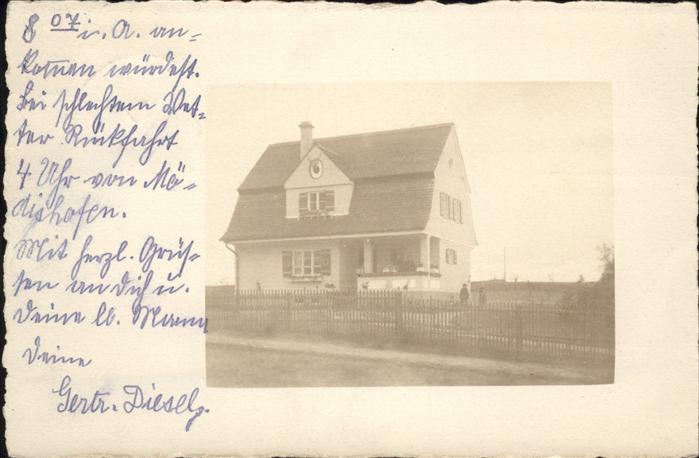 8 07 i. A. an-
kommen würdest.
Bei schlechtem Wet-
ter Rückfahrt
4 Uhr von Mö-
dishofen.
Mit herzl. Grüs-
sen an Dich u.
Deine lb. Mann
Deine
Gertr. Diesel.